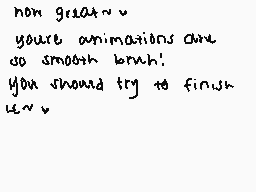 how great~ v
youre animations are
so smooth bruh!
you should try to finish
it~ v